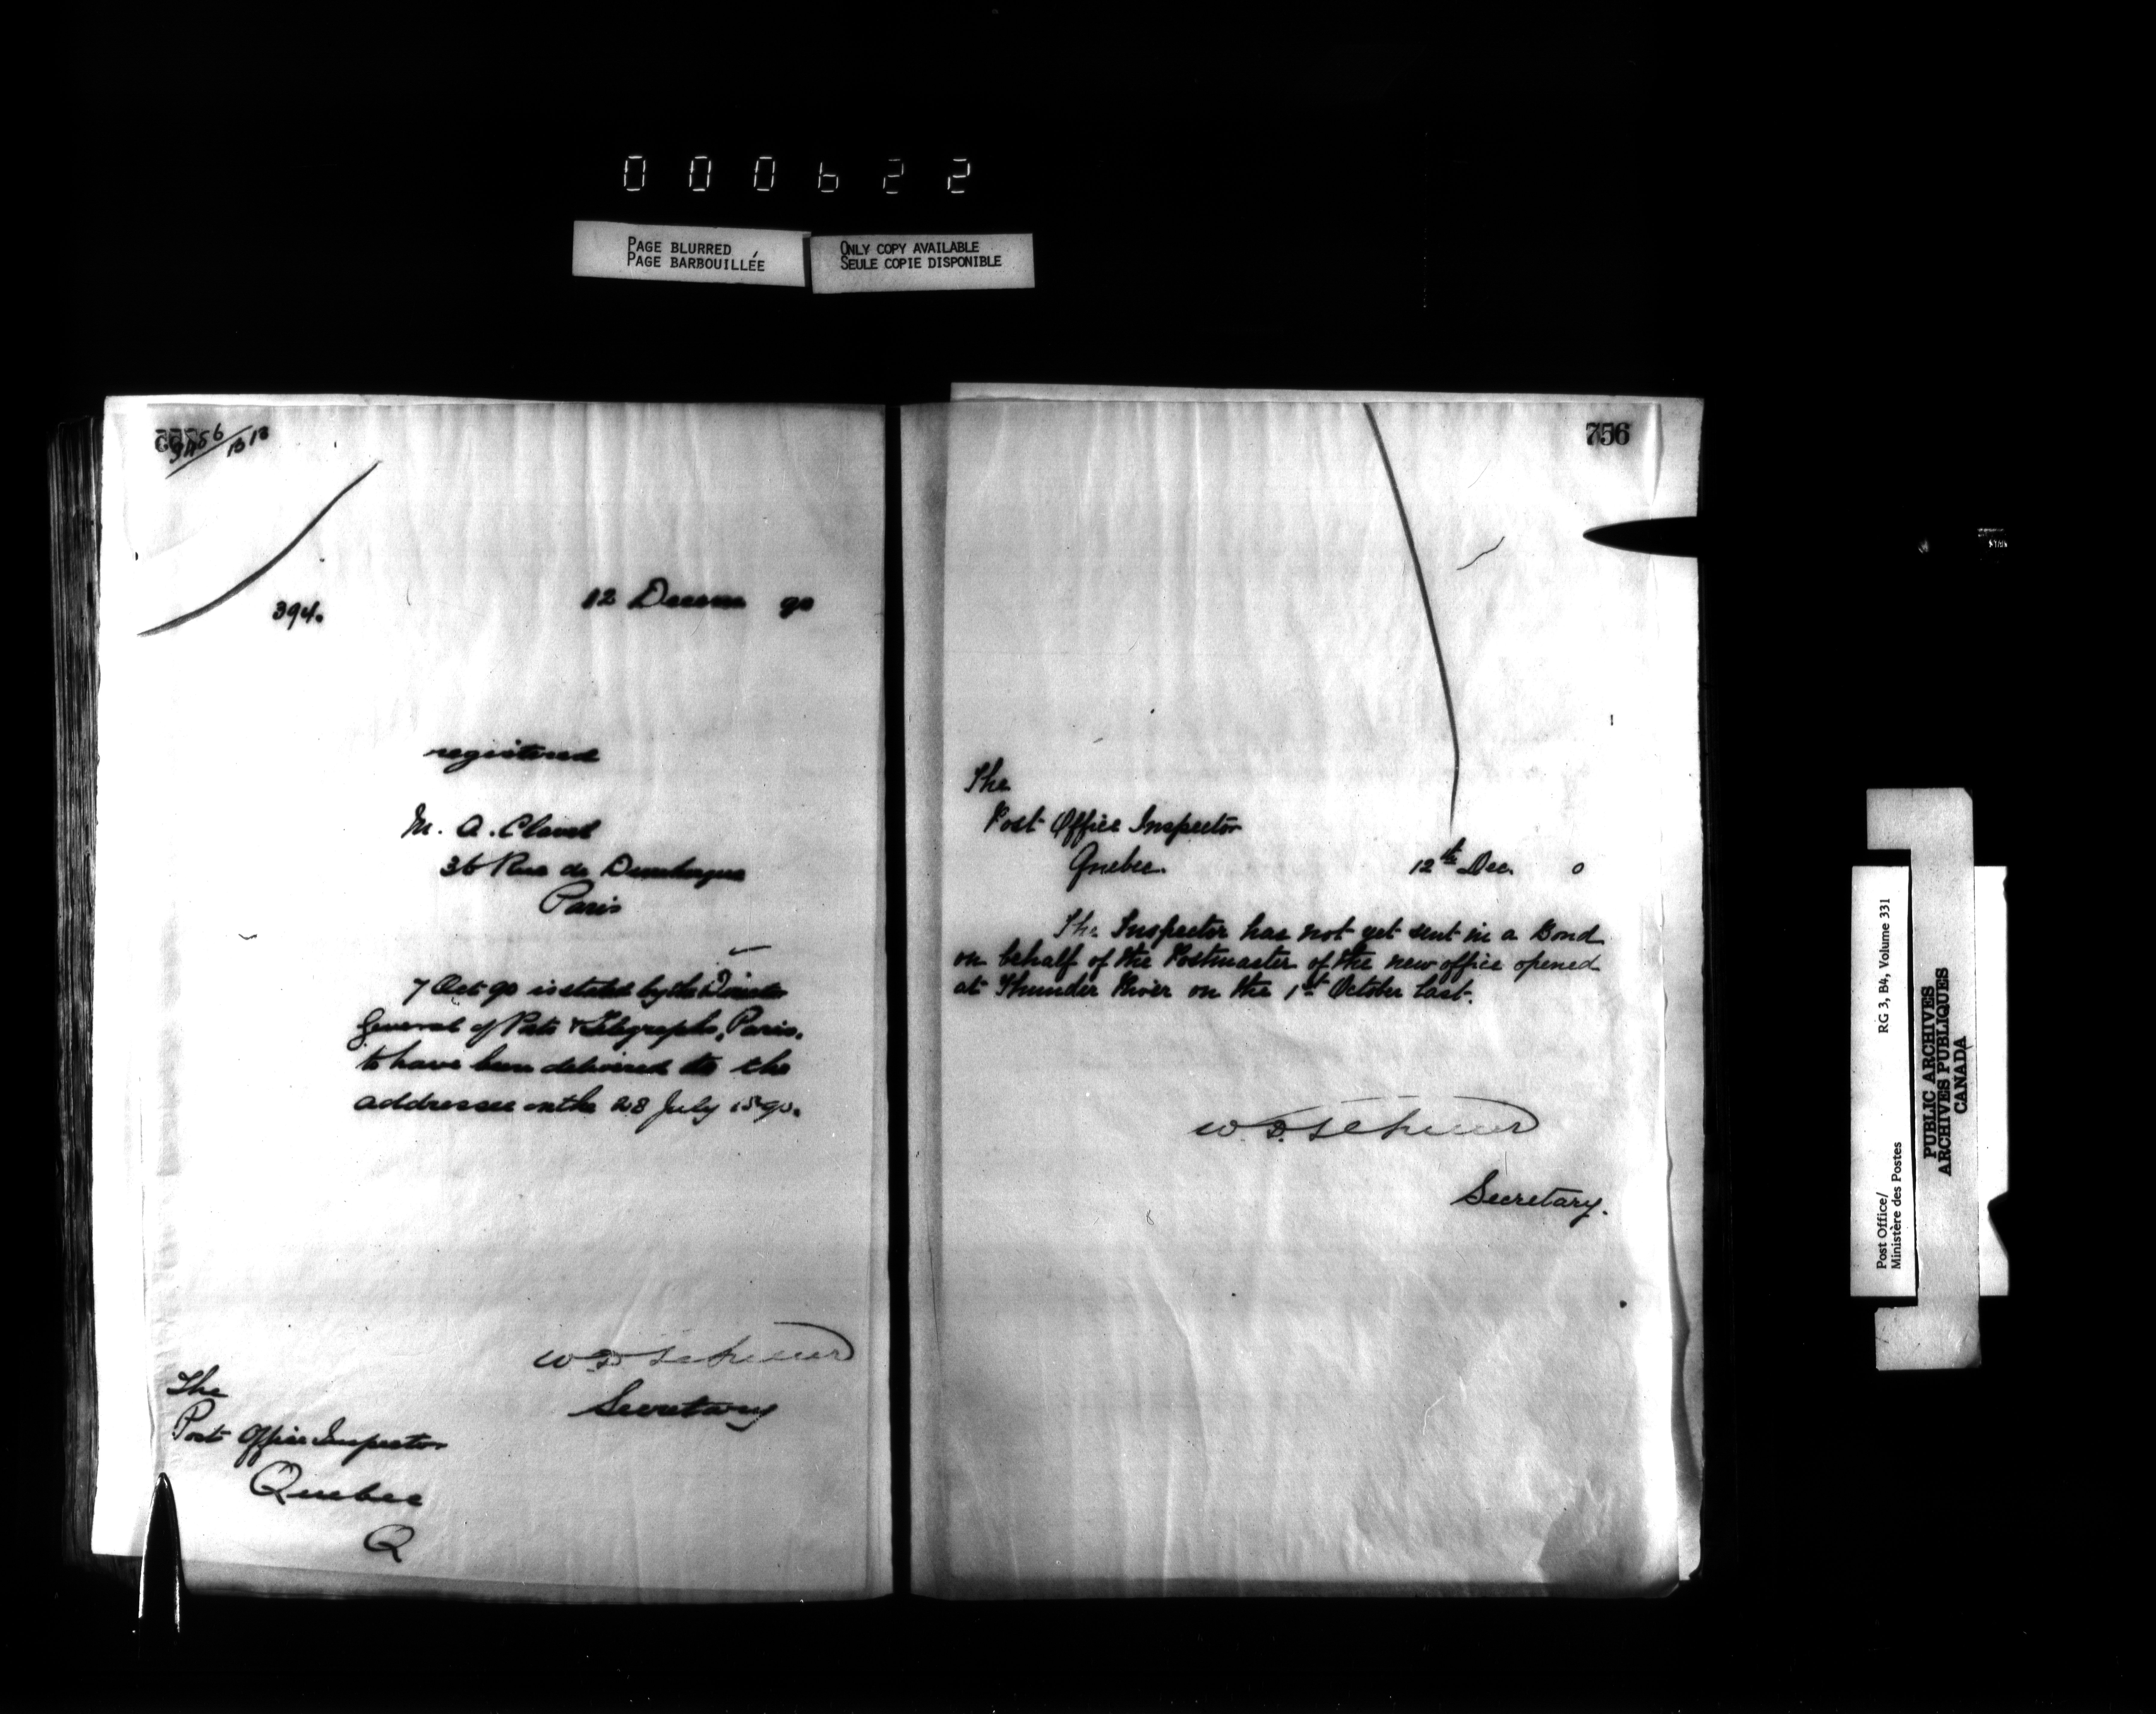 000622
PAGE BLURRED
PAGE BARBOUILLÉE
ONLY COPY AVAILABLE
SEULE COPIE DISPONIBLE
394.
12 Decem 90
registered
M. A. Clavel
36 Rue de Dunkerque
Paris
7 Oct 90 is stated by the Director
General of Posts & Telegraphs, Paris,
to have been delivered to the
addressee on the 28 July 1890.
Secretary
The
Post Office Inspector
Quebec
Q
756
The
Post Office Inspector
Quebec.
12th Dec. 0
The Inspector has not yet sent in a Bond
on behalf of the Postmaster of the new office opened
at Thunder River on the 1st October last.
Secretary.
Post Office/
Ministère des Postes
RG 3, B4, Volume 331
PUBLIC ARCHIVES
ARCHIVES PUBLIQUES
CANADA